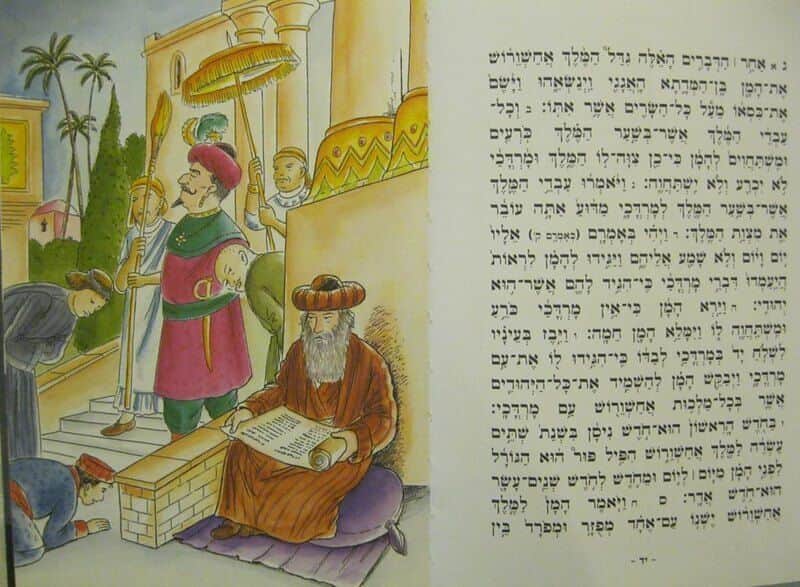 ג א אַחַ֣ר | הַדְּבָרִ֣ים הָאֵ֗לֶּה גִּדַּל֩ הַמֶּ֨לֶךְ אֲחַשְׁוֵר֜וֹשׁ
אֶת־הָמָ֧ן בֶּֽן־הַמְּדָ֛תָא הָאֲגָגִ֖י וַֽיְנַשְּׂאֵ֑הוּ וַיָּ֙שֶׂם֙
אֶת־כִּסְא֔וֹ מֵעַ֕ל כָּל־הַשָּׂרִ֖ים אֲשֶׁ֥ר אִתּֽוֹ׃ ב וְכָל־
עַבְדֵ֨י הַמֶּ֜לֶךְ אֲשֶׁר־בְּשַׁ֣עַר הַמֶּ֗לֶךְ כֹּרְעִ֤ים
וּמִֽשְׁתַּחֲוִים֙ לְהָמָ֔ן כִּי־כֵ֖ן צִוָּה־ל֣וֹ הַמֶּ֑לֶךְ וּמָ֨רְדֳּכַ֔י
לֹ֥א יִכְרַ֖ע וְלֹ֥א יִֽשְׁתַּחֲוֶֽה׃ ג וַיֹּ֨אמְר֜וּ עַבְדֵ֥י הַמֶּ֛לֶךְ
אֲשֶׁר־בְּשַׁ֥עַר הַמֶּ֖לֶךְ לְמָרְדֳּכָ֑י מַדּ֙וּעַ֙ אַתָּ֣ה עוֹבֵ֔ר
אֵ֖ת מִצְוַ֥ת הַמֶּֽלֶךְ׃ ד וַיְהִ֗י בְּאָמְרָ֤ם (כְּאָמְרָם ק') אֵלָיו֙
י֣וֹם וָי֔וֹם וְלֹ֥א שָׁמַ֖ע אֲלֵיהֶ֑ם וַיַּגִּ֣ידוּ לְהָמָ֗ן לִרְאוֹת֙
הֲיַֽעַמְדוּ֙ דִּבְרֵ֣י מָרְדֳּכַ֔י כִּֽי־הִגִּ֥יד לָהֶ֖ם אֲשֶׁר־ה֥וּא
יְהוּדִֽי׃ ה וַיַּ֣רְא הָמָ֔ן כִּי־אֵ֣ין מָרְדֳּכַ֔י כֹּרֵ֥עַ
וּמִֽשְׁתַּחֲוֶ֖ה ל֑וֹ וַיִּמָּלֵ֥א הָמָ֖ן חֵמָֽה׃ ו וַיִּ֣בֶז בְּעֵינָ֗יו
לִשְׁלֹ֤חַ יָד֙ בְּמָרְדֳּכַ֣י לְבַדּ֔וֹ כִּֽי־הִגִּ֥ידוּ ל֖וֹ אֶת־עַ֣ם
מָרְדֳּכָ֑י וַיְבַקֵּ֣שׁ הָמָ֗ן לְהַשְׁמִ֧יד אֶת־כָּל־הַיְּהוּדִ֛ים
אֲשֶׁ֛ר בְּכָל־מַלְכ֥וּת אֲחַשְׁוֵר֖וֹשׁ עַ֥ם מָרְדֳּכָֽי׃
ז בַּחֹ֤דֶשׁ הָרִאשׁוֹן֙ הוּא־חֹ֣דֶשׁ נִיסָ֔ן בִּשְׁנַת֙ שְׁתֵּ֣ים
עֶשְׂרֵ֔ה לַמֶּ֖לֶךְ אֲחַשְׁוֵר֑וֹשׁ הִפִּ֣יל פּוּר֩ ה֨וּא הַגּוֹרָ֜ל
לִפְנֵ֣י הָמָ֗ן מִיּ֧וֹם | לְי֛וֹם וּמֵחֹ֛דֶשׁ לְחֹ֥דֶשׁ שְׁנֵים־עָשָׂ֖ר
הוּא־חֹ֥דֶשׁ אֲדָֽר׃ ס ח וַיֹּ֤אמֶר הָמָן֙ לַמֶּ֣לֶךְ
אֲחַשְׁוֵר֔וֹשׁ יֶשְׁנ֣וֹ עַם־אֶחָ֗ד מְפֻזָּ֤ר וּמְפֹרָד֙ בֵּ֣ין
- יד -